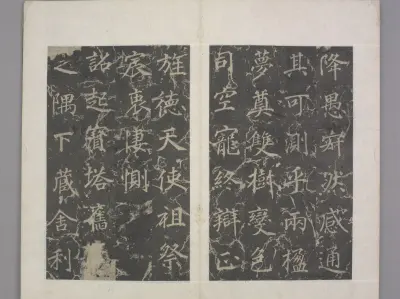 降愚然感通
其可測乎兩楹
夢奠雙樹變色
司空寵終辯正
旌德天使祖祭
宸衷悽惻
詔起寶塔舊
之隅下藏舍利